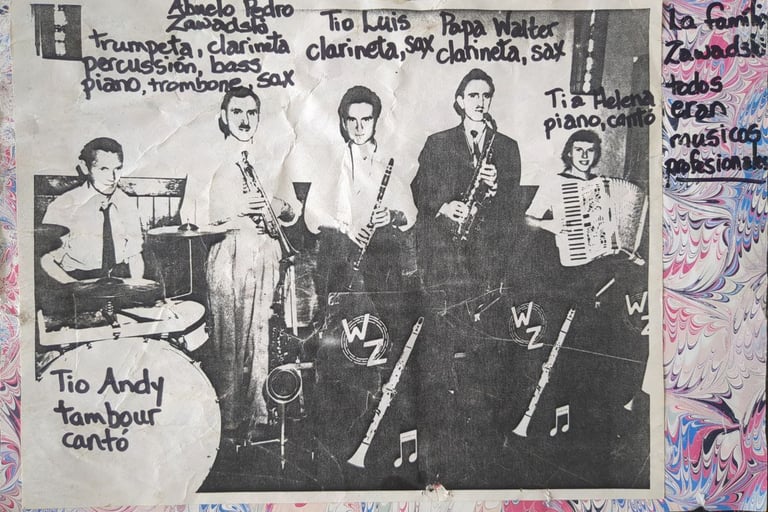 Abuelo Pedro
Zawadski
trumpeta, clarineta
percussión, bass
piano, trombone, sax
Tio Luis
clarineta, sax
Papa Walter
clarineta, sax
Tia Helena
piano, cantó
La famili
Zawadski
todos
eran
musicos
profesionales
Tio Andy
tambour
cantó
WZ
WZ
W